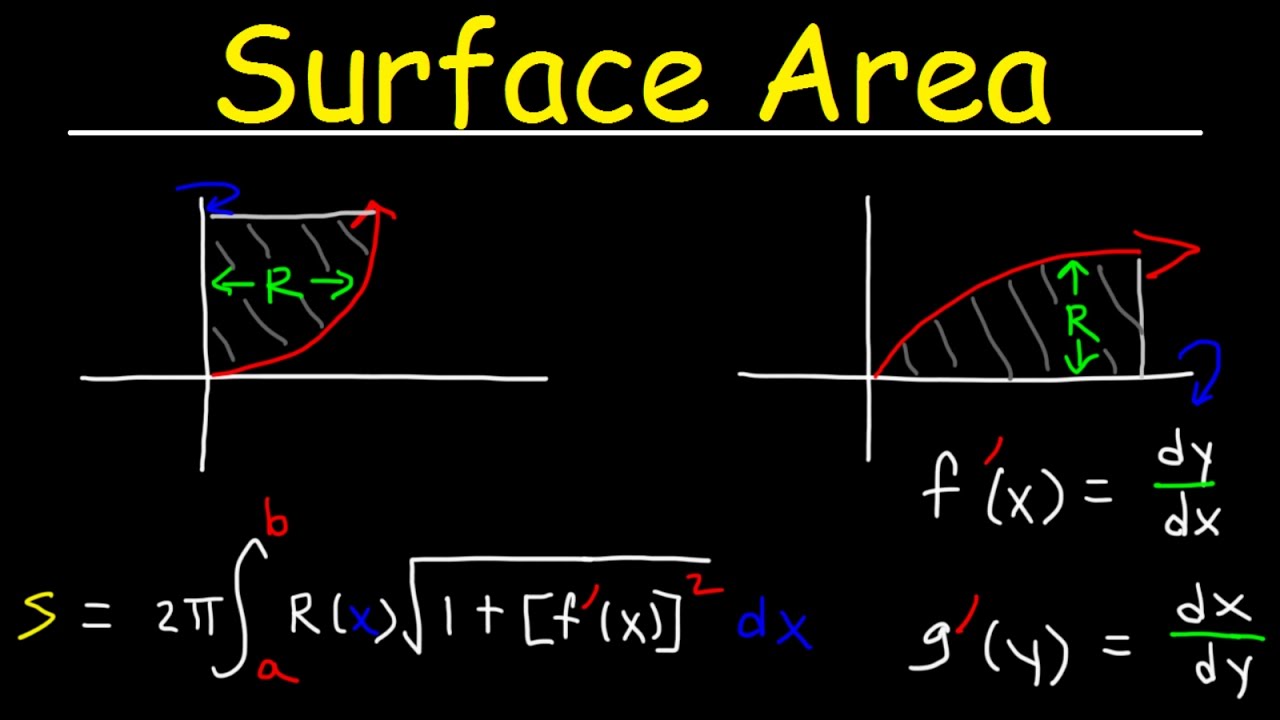 Surface Area
R
R
f'(x) = dy/dx
S = 2π∫ₐᵇ R(x)√(1 + [f'(x)]²) dx
g'(y) = dx/dy